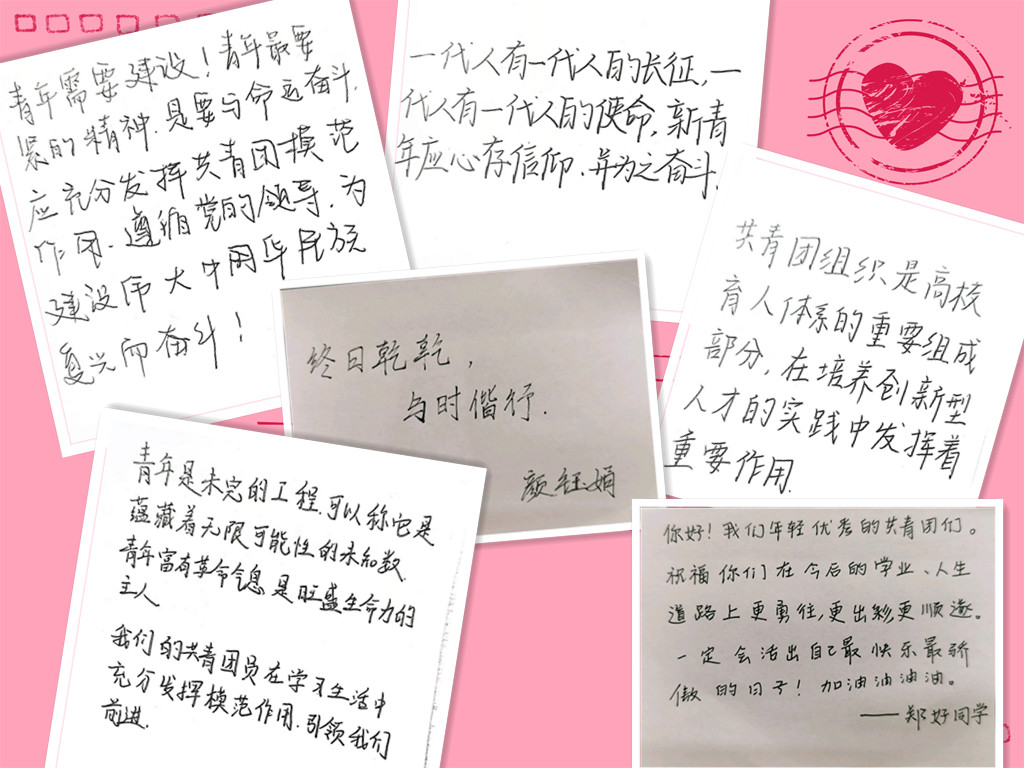 青年需要建设！青年最要
紧的精神.是要与命运奋斗.
应充分发挥共青团模范
作用.遵循党的领导.为
建设伟大中国华民族
复兴而奋斗！
一代人有一代人的长征,一
代人有一代人的使命,新青
年应心存信仰.并为之奋斗.
共青团组织是高校
育人体系的重要组成
部分,在培养创新型
人才的实践中发挥着
重要作用.
终日乾乾，
与时偕行.
颜钰娟
青年是未完的工程.可以称它是
蕴藏着无限可能性的未知数.
青年富有革命气息是旺盛生命力的
主人
我们的共青团员在学习生活中
充分发挥模范作用.引领我们
前进.
你好！我们年轻优秀的共青团们。
祝福你们在今后的学业、人生
道路上更勇往,更出彩更顺遂。
一定会活出自己最快乐最骄
傲的日子！加油油油油。
——郑好同学